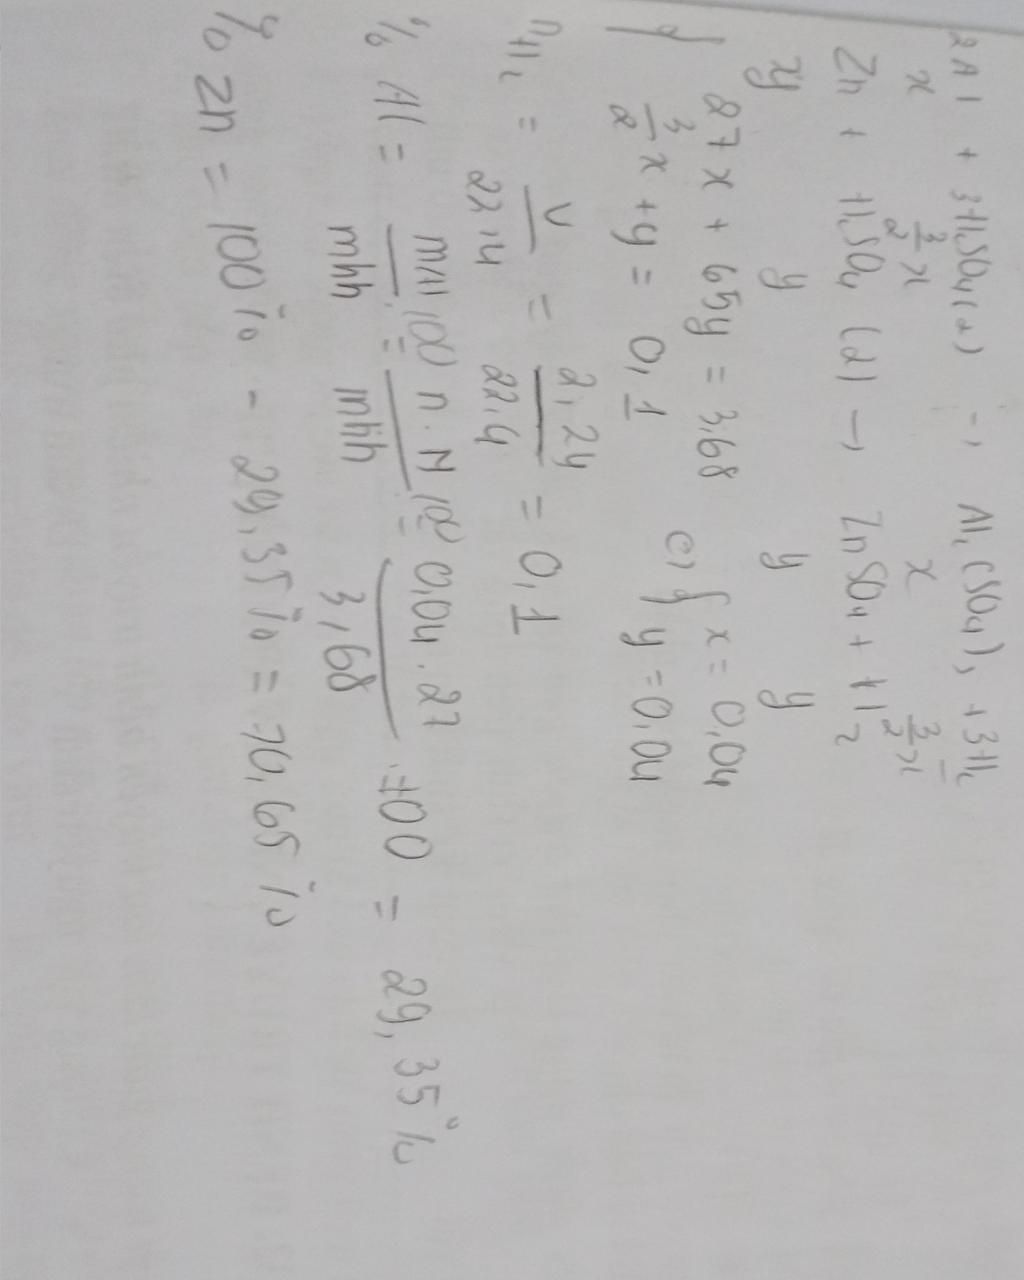 2Al + 3H₂SO₄(l) → Al₂(SO₄)₃ + 3H₂
x 3/2 x x 3/2 x
Zn + H₂SO₄ (l) → ZnSO₄ + H₂
y y y y
{ 27x + 65y = 3,68 (=) { x = 0,04
3/2 x + y = 0,1 y = 0,04
nH₂ = V/22,4 = 2,24/22,4 = 0,1
% Al = mAl.100/mhh = n.M.100/mhh = 0,04.27/3,68 .100 = 29,35%
% Zn = 100% - 29,35% = 70,65%